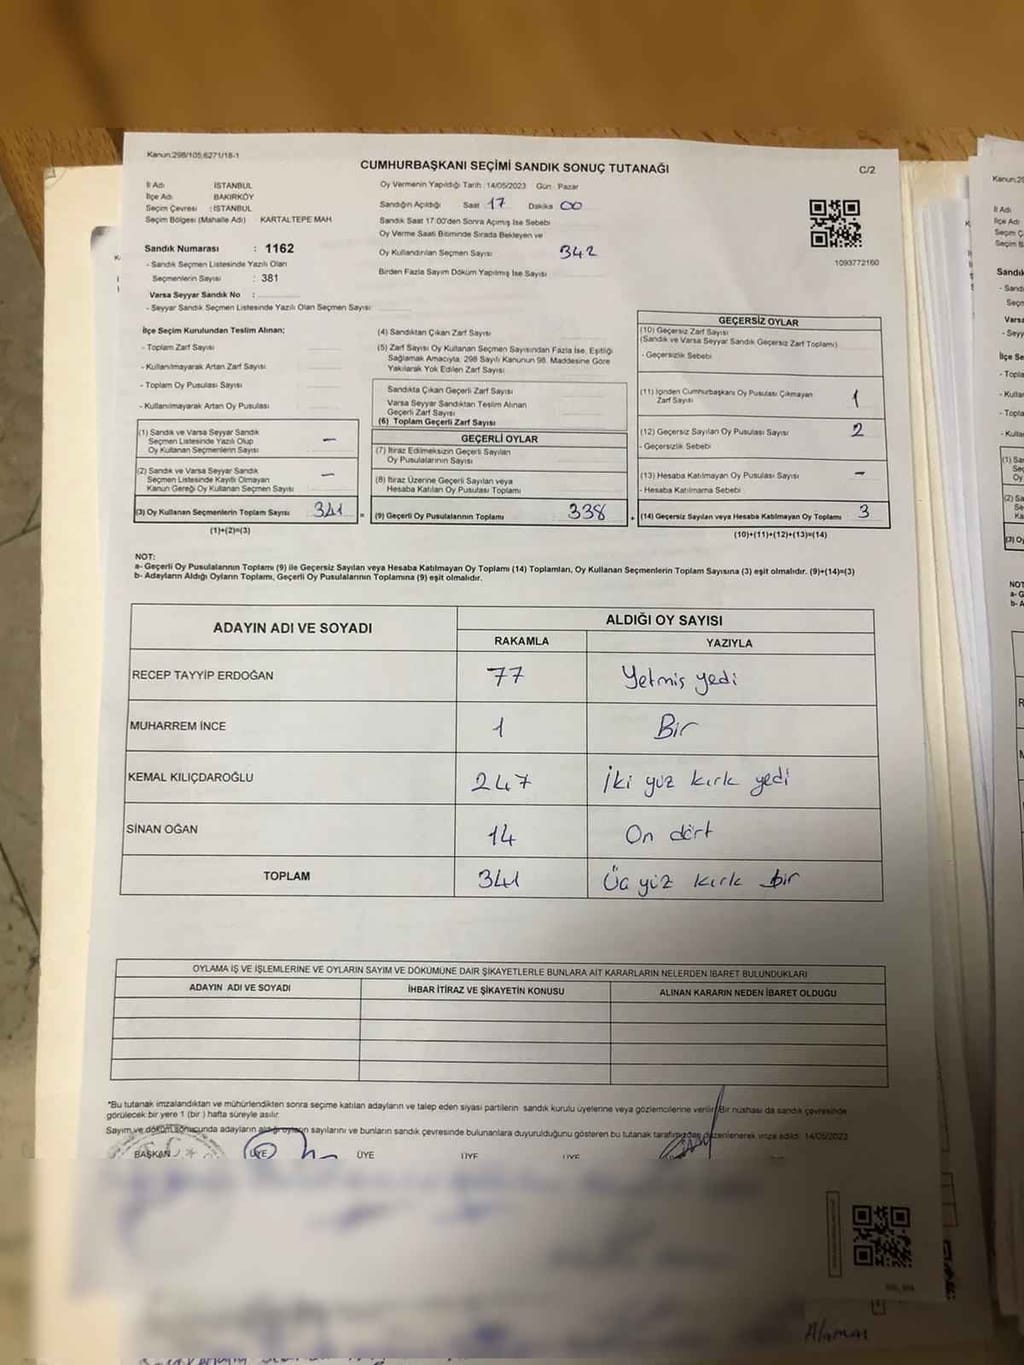 Kanun;298/105;6271/18-1
CUMHURBAŞKANI SEÇİMİ SANDIK SONUÇ TUTANAĞI
C/2
İl Adı : İSTANBUL
İlçe Adı : BAKIRKÖY
Seçim Çevresi : İSTANBUL
Seçim Bölgesi (Mahalle Adı) KARTALTEPE MAH
Sandık Numarası : 1162
- Sandık Seçmen Listesinde Yazılı Olan
Seçmenlerin Sayısı : 381
Varsa Seyyar Sandık No :
- Seyyar Sandık Seçmen Listesinde Yazılı Olan Seçmen Sayısı
Oy Vermenin Yapıldığı Tarih :14/05/2023 Gün : Pazar
Sandığın Açıldığı Saat 17 Dakika 00
Sandık Saat 17.00'den Sonra Açımış İse Sebebi
Oy Verme Saati Bitiminde Sırada Bekleyen ve
Oy Kullandırılan Seçmen Sayısı 342
Birden Fazla Sayım Döküm Yapılmış İse Sayısı
1093772160
İlçe Seçim Kurulundan Teslim Alınan;
- Toplam Zarf Sayısı
- Kullanılmayarak Artan Zarf Sayısı
- Toplam Oy Pusulası Sayısı
- Kullanılmayarak Artan Oy Pusulası
(1) Sandık ve Varsa Seyyar Sandık
Seçmen Listesinde Yazılı Olup
Oy Kullanan Seçmenlerin Sayısı –
(2) Sandık ve Varsa Seyyar Sandık
Seçmen Listesinde Kayıtlı Olmayan
Kanun Gereği Oy Kullanan Seçmen Sayısı –
(3) Oy Kullanan Seçmenlerin Toplam Sayısı 341 =
(1)+(2)=(3)
(4) Sandıktan Çıkan Zarf Sayısı
(5) Zarf Sayısı Oy Kullanan Seçmen Sayısından Fazla İse, Eşitliği
Sağlamak Amacıyla, 298 Sayılı Kanunun 98. Maddesine Göre
Yakılarak Yok Edilen Zarf Sayısı
Sandıkta Çıkan Geçerli Zarf Sayısı
Varsa Seyyar Sandıktan Teslim Alınan
Geçerli Zarf Sayısı
(6) Toplam Geçerli Zarf Sayısı
GEÇERLİ OYLAR
(7) İtiraz Edilmeksizin Geçerli Sayılan
Oy Pusulalarının Sayısı
(8) İtiraz Üzerine Geçerli Sayılan veya
Hesaba Katılan Oy Pusulası Toplamı
(9) Geçerli Oy Pusulalarının Toplamı 338 +
GEÇERSİZ OYLAR
(10) Geçersiz Zarf Sayısı
(Sandık ve Varsa Seyyar Sandık Geçersiz Zarf Toplamı)
- Geçersizlik Sebebi
(11) İçinden Cumhurbaşkanı Oy Pusulası Çıkmayan
Zarf Sayısı 1
(12) Geçersiz Sayılan Oy Pusulası Sayısı 2
- Geçersizlik Sebebi
(13) Hesaba Katılmayan Oy Pusulası Sayısı –
- Hesaba Katılmama Sebebi
(14) Geçersiz Sayılan veya Hesaba Katılmayan Oy Toplamı 3
(10)+(11)+(12)+(13)=(14)
NOT:
a- Geçerli Oy Pusulalarının Toplamı (9) ile Geçersiz Sayılan veya Hesaba Katılmayan Oy Toplamı (14) Toplamları, Oy Kullanan Seçmenlerin Toplam Sayısına (3) eşit olmalıdır. (9)+(14)=(3)
b- Adayların Aldığı Oyların Toplamı, Geçerli Oy Pusulalarının Toplamına (9) eşit olmalıdır.
ADAYIN ADI VE SOYADI
ALDIĞI OY SAYISI
RAKAMLA YAZIYLA
RECEP TAYYİP ERDOĞAN 77 Yetmiş yedi
MUHARREM İNCE 1 Bir
KEMAL KILIÇDAROĞLU 247 İki yüz kırk yedi
SİNAN OĞAN 14 On dört
TOPLAM 341 Üç yüz kırk bir
OYLAMA İŞ VE İŞLEMLERİNE VE OYLARIN SAYIM VE DÖKÜMÜNE DAİR ŞİKAYETLERLE BUNLARA AİT KARARLARIN NELERDEN İBARET BULUNDUKLARI
ADAYIN ADI VE SOYADI İHBAR İTİRAZ VE ŞİKAYETİN KONUSU ALINAN KARARIN NEDEN İBARET OLDUĞU
*Bu tutanak imzalandıktan ve mühürlendikten sonra seçime katılan adayların ve talep eden siyasi partilerin sandık kurulu üyelerine veya gözlemcilerine verilir. Bir nüshası da sandık çevresinde
görülecek bir yere 1 (bir) hafta süreyle asılır.
Sayım ve döküm sonucunda adayların aldığı oyların sayılarını ve bunların sandık çevresinde bulunanlara duyurulduğunu gösteren bu tutanak tarafımızdan düzenlenerek imza edildi. 14/05/2023
BAŞKAN ÜYE ÜYE ÜYE ÜYE